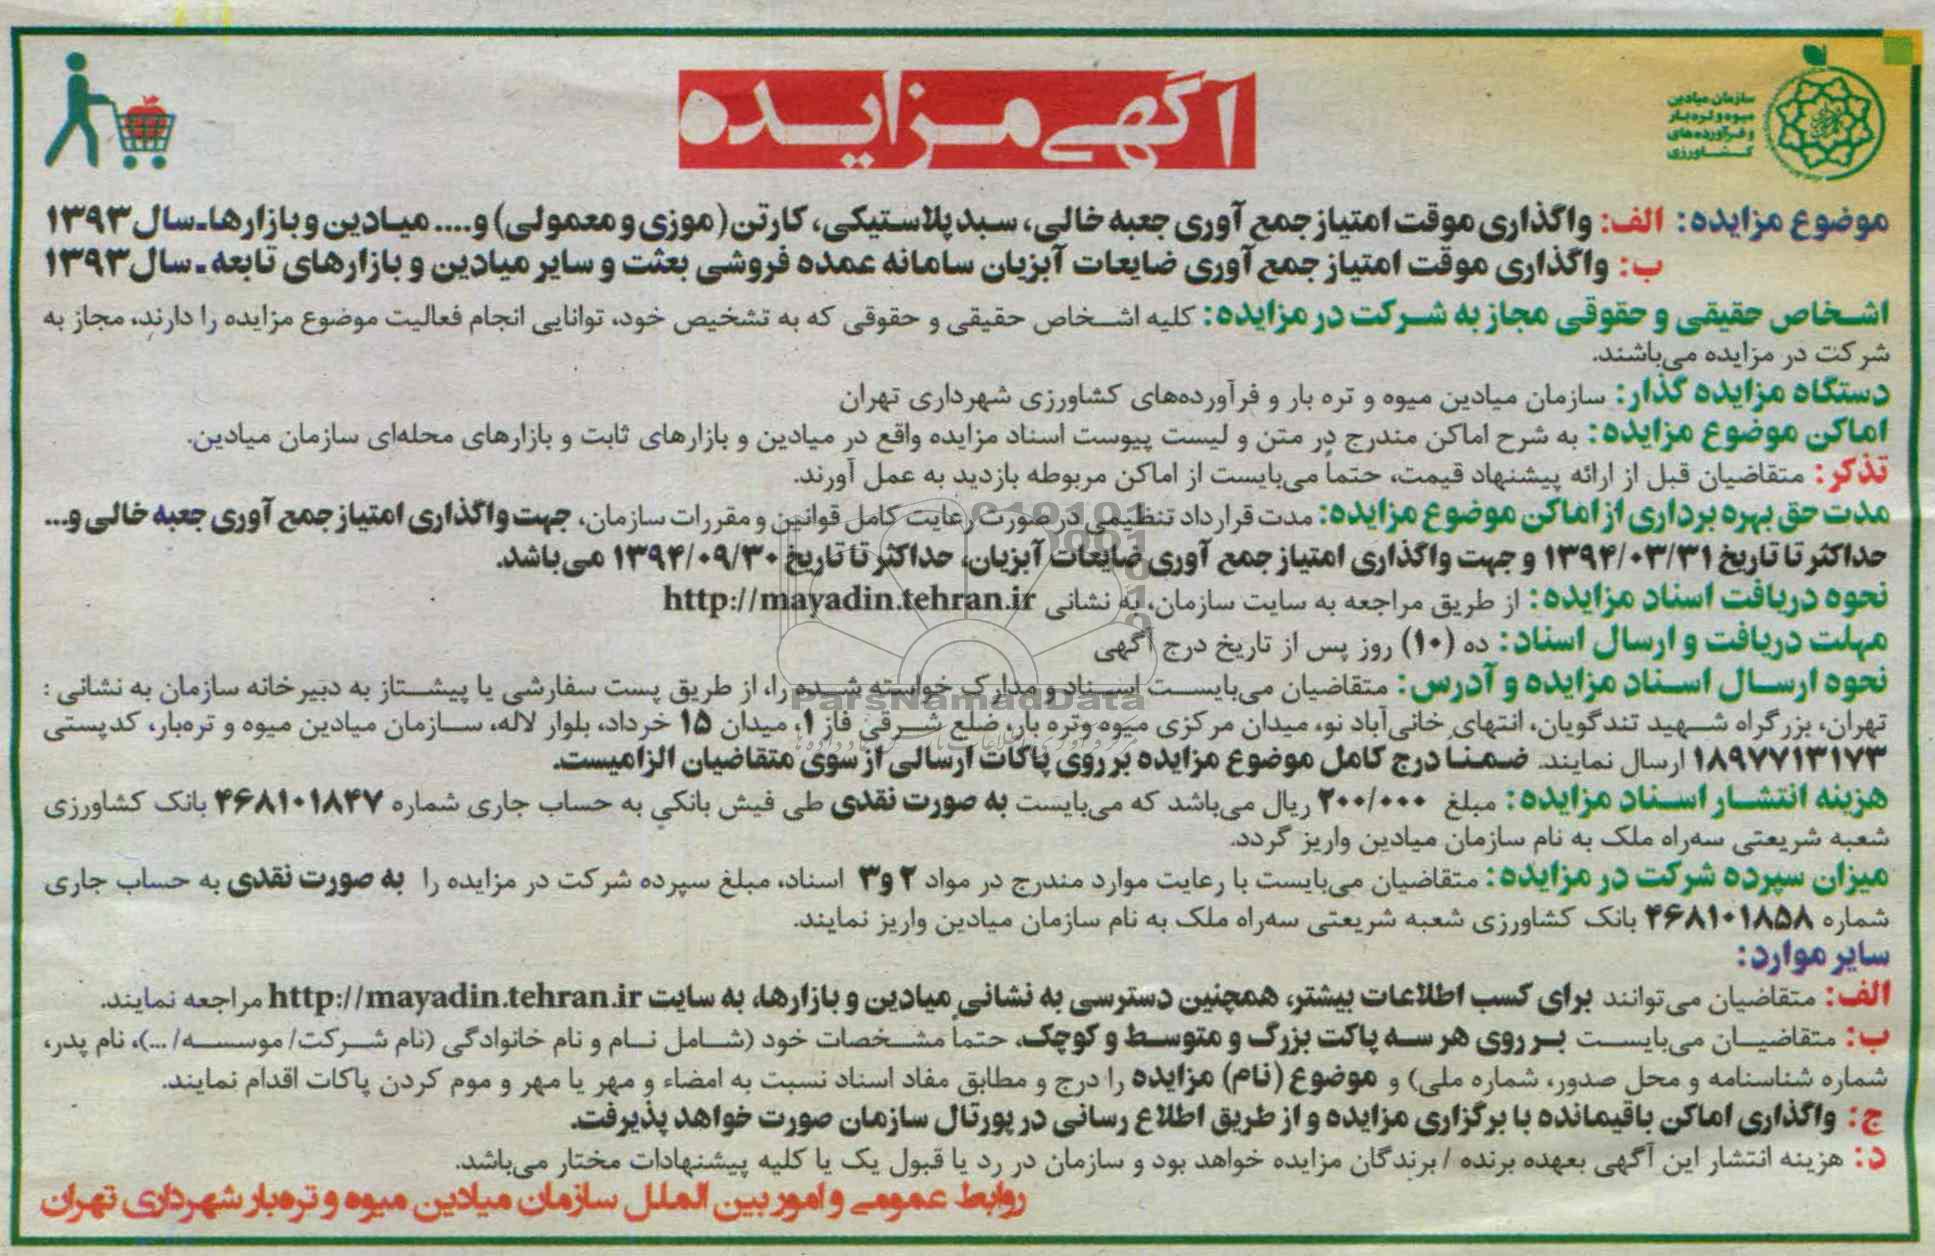 سازمان میادین
میوه و تره بار
و فرآورده‌های
کشاورزی
آگهی مزایده
موضوع مزایده: الف: واگذاری موقت امتیاز جمع آوری جعبه خالی، سبد پلاستیکی، کارتن (موزی و معمولی) و.... میادین و بازارها-سال ۱۳۹۳
ب: واگذاری موقت امتیاز جمع آوری ضایعات آبزیان سامانه عمده فروشی بعثت و سایر میادین و بازارهای تابعه - سال ۱۳۹۳
اشخاص حقیقی و حقوقی مجاز به شرکت در مزایده: کلیه اشخاص حقیقی و حقوقی که به تشخیص خود، توانایی انجام فعالیت موضوع مزایده را دارند، مجاز به
شرکت در مزایده می‌باشند.
دستگاه مزایده گذار: سازمان میادین میوه و تره بار و فرآورده‌های کشاورزی شهرداری تهران
اماکن موضوع مزایده: به شرح اماکن مندرج در متن و لیست پیوست اسناد مزایده واقع در میادین و بازارهای ثابت و بازارهای محله‌ای سازمان میادین.
تذکر: متقاضیان قبل از ارائه پیشنهاد قیمت، حتماً می‌بایست از اماکن مربوطه بازدید به عمل آورند.
مدت حق بهره برداری از اماکن موضوع مزایده: مدت قرارداد تنظیمی در صورت رعایت کامل قوانین و مقررات سازمان، جهت واگذاری امتیاز جمع آوری جعبه خالی و...
حداکثر تا تاریخ ۱۳۹۴/۰۳/۳۱ و جهت واگذاری امتیاز جمع آوری ضایعات آبزیان، حداکثر تا تاریخ ۱۳۹۴/۰۹/۳۰ می‌باشد.
نحوه دریافت اسناد مزایده: از طریق مراجعه به سایت سازمان، به نشانی http://mayadin.tehran.ir
مهلت دریافت و ارسال اسناد: ده (۱۰) روز پس از تاریخ درج آگهی
نحوه ارسال اسناد مزایده و آدرس: متقاضیان می‌بایست اسناد و مدارک خواسته شده را، از طریق پست سفارشی یا پیشتاز به دبیرخانه سازمان به نشانی :
ParsNamadData
تهران، بزرگراه شهید تندگویان، انتهای خانی‌آباد نو، میدان مرکزی میوه و تره بار، ضلع شرقی فاز ۱، میدان ۱۵ خرداد، بلوار لاله، سازمان میادین میوه و تره‌بار، کدپستی
۱۸۹۷۷۱۳۱۷۳ ارسال نمایند. ضمنا درج کامل موضوع مزایده بر روی پاکات ارسالی از سوی متقاضیان الزامیست.
هزینه انتشار اسناد مزایده: مبلغ ۲۰۰/۰۰۰ ریال می‌باشد که می‌بایست به صورت نقدی طی فیش بانکی به حساب جاری شماره ۴۶۸۱۰۱۸۴۷ بانک کشاورزی
شعبه شریعتی سه‌راه ملک به نام سازمان میادین واریز گردد.
میزان سپرده شرکت در مزایده: متقاضیان می‌بایست با رعایت موارد مندرج در مواد ۲ و ۳ اسناد، مبلغ سپرده شرکت در مزایده را به صورت نقدی به حساب جاری
شماره ۴۶۸۱۰۱۸۵۸ بانک کشاورزی شعبه شریعتی سه‌راه ملک به نام سازمان میادین واریز نمایند.
سایر موارد:
الف: متقاضیان می‌توانند برای کسب اطلاعات بیشتر، همچنین دسترسی به نشانی میادین و بازارها، به سایت http://mayadin.tehran.ir مراجعه نمایند.
ب: متقاضیان می‌بایست بر روی هر سه پاکت بزرگ و متوسط و کوچک، حتماً مشخصات خود (شامل نام و نام خانوادگی (نام شرکت/ موسسه/ ...)، نام پدر،
شماره شناسنامه و محل صدور، شماره ملی) و موضوع (نام) مزایده را درج و مطابق مفاد اسناد نسبت به امضاء و مهر یا مهر و موم کردن پاکات اقدام نمایند.
ج: واگذاری اماکن باقیمانده با برگزاری مزایده و از طریق اطلاع رسانی در پورتال سازمان صورت خواهد پذیرفت.
د: هزینه انتشار این آگهی بعهده برنده / برندگان مزایده خواهد بود و سازمان در رد یا قبول یک یا کلیه پیشنهادات مختار می‌باشد.
روابط عمومی و امور بین الملل سازمان میادین میوه و تره‌بار شهرداری تهران